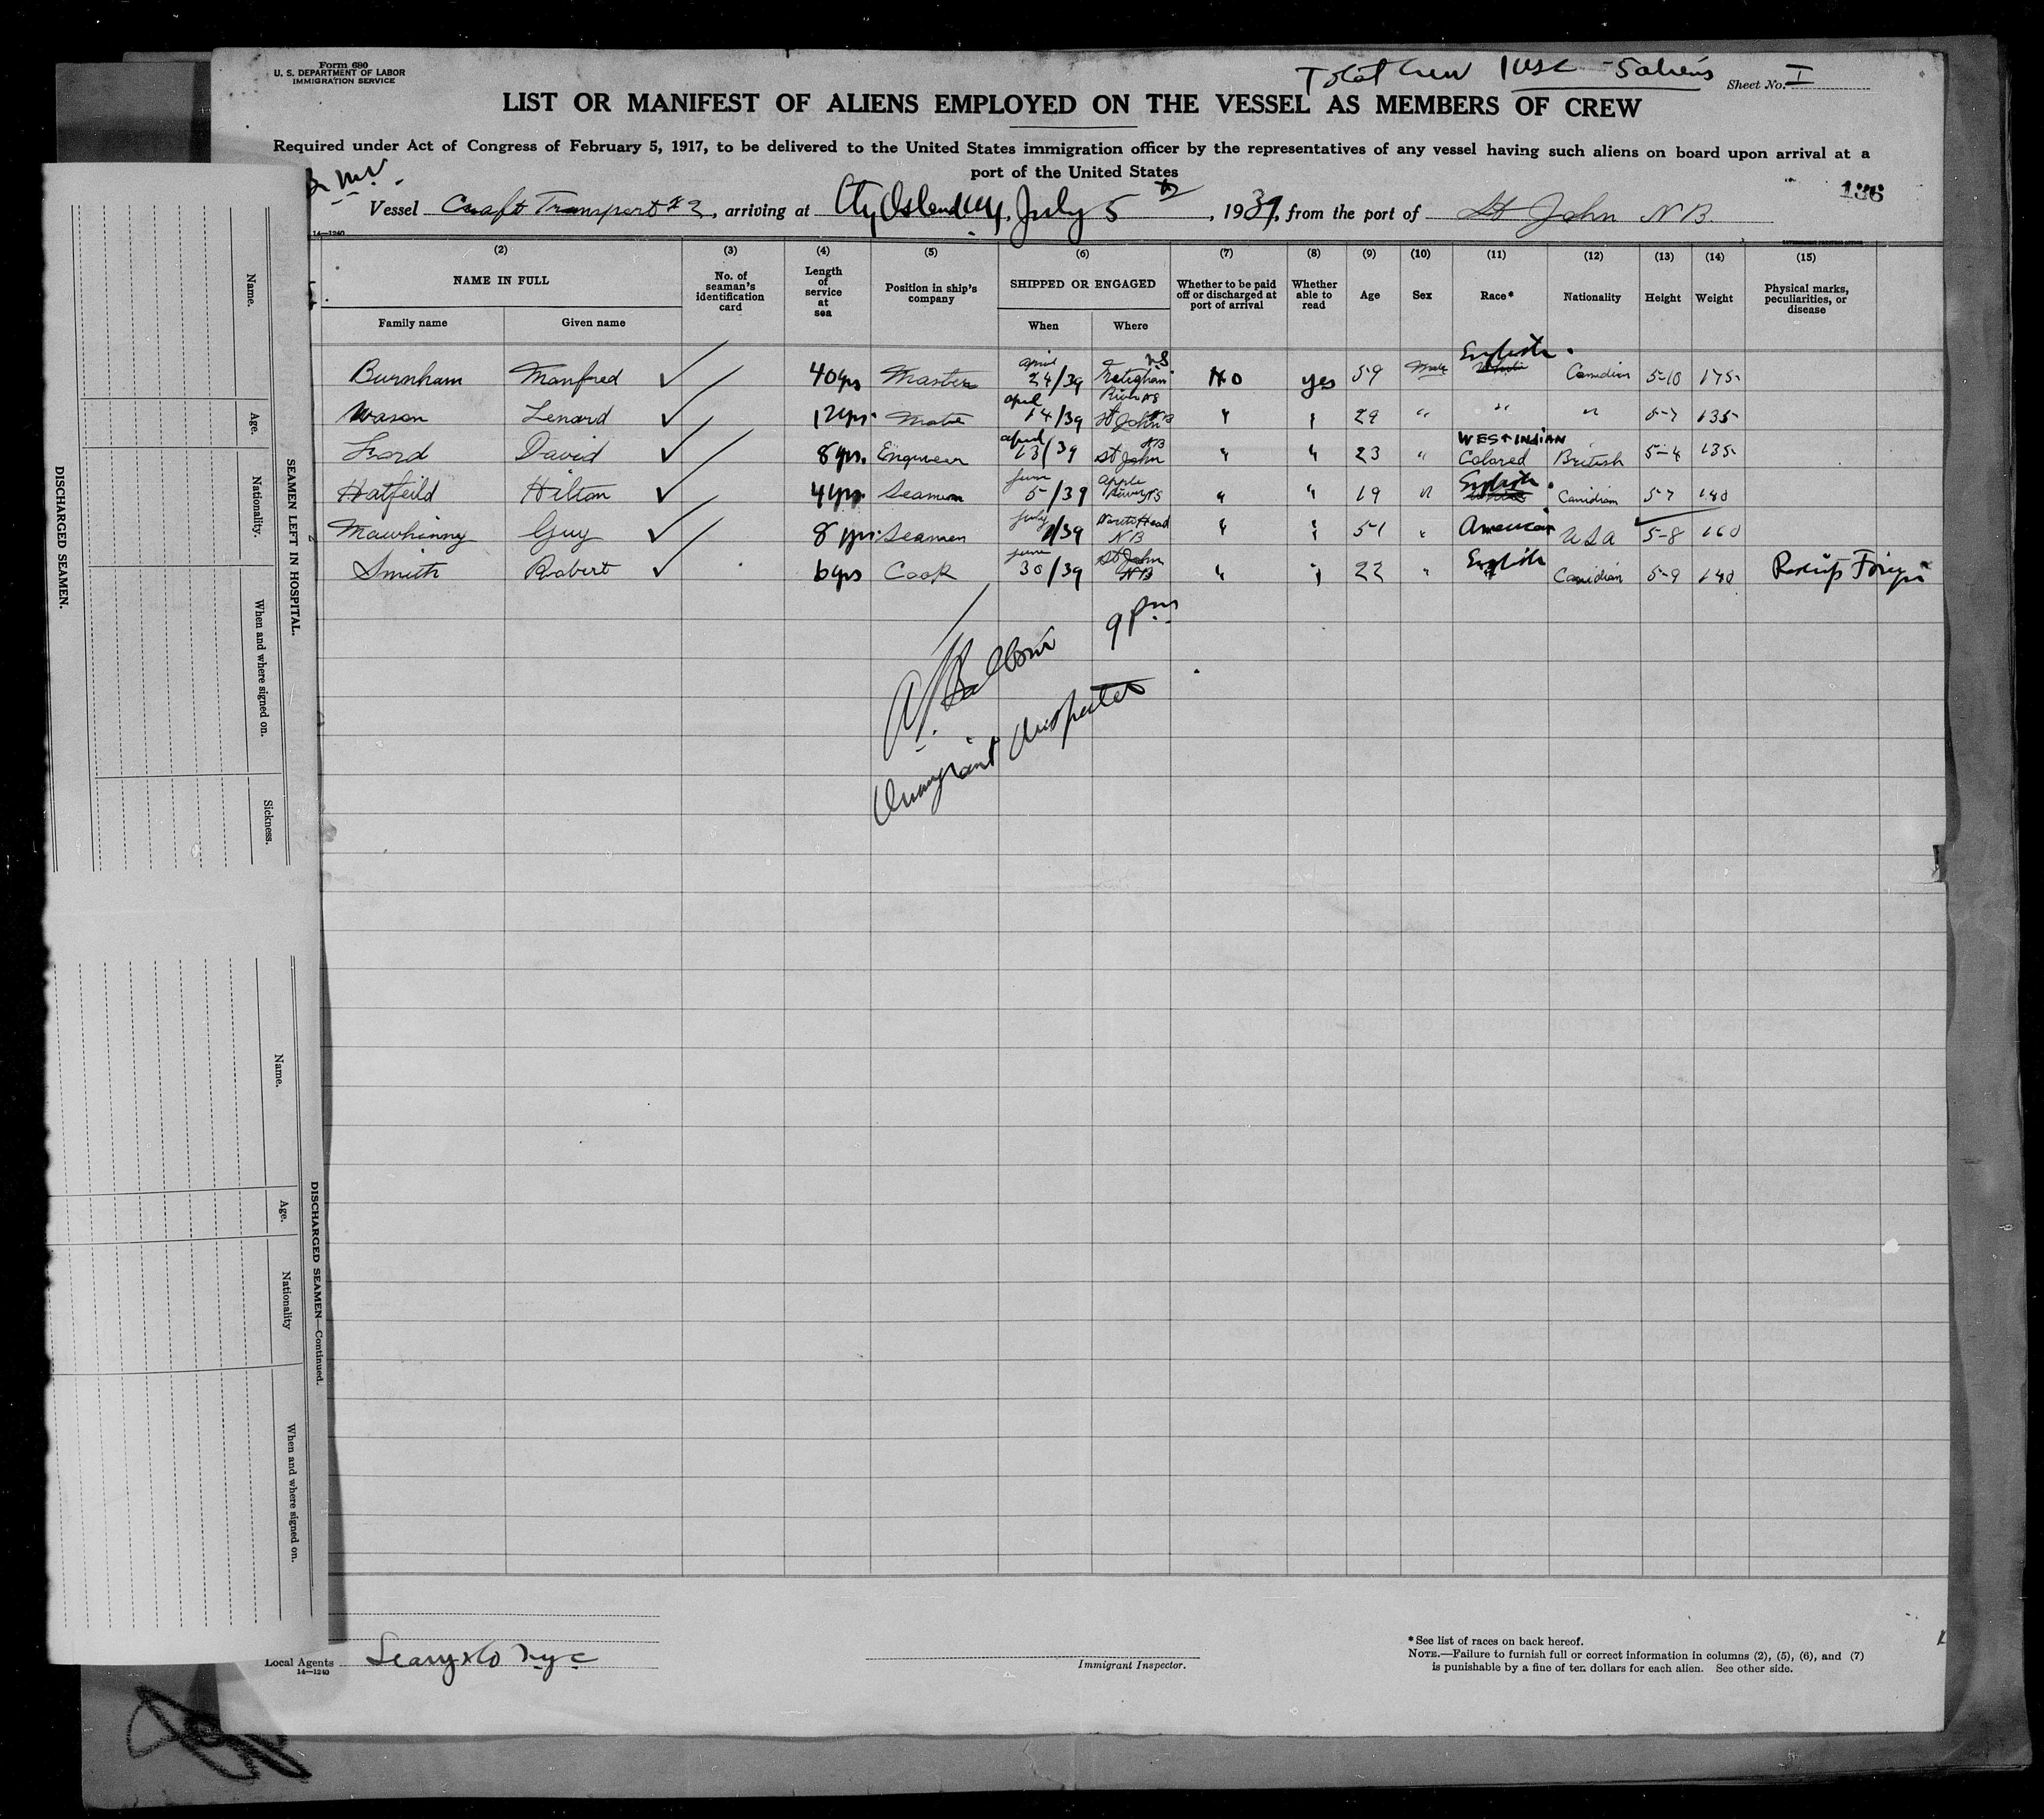 Form 680
U. S. DEPARTMENT OF LABOR
IMMIGRATION SERVICE
Total Crew 1 USC - 5 aliens
Sheet No. I
LIST OR MANIFEST OF ALIENS EMPLOYED ON THE VESSEL AS MEMBERS OF CREW
Required under Act of Congress of February 5, 1917, to be delivered to the United States immigration officer by the representatives of any vessel having such aliens on board upon arrival at a
port of the United States
136
Vessel Craft Transport #2, arriving at City Island N.Y. July 5th, 1939, from the port of St John N B.
14—1240
(2) (3) (4) (5) (6) (7) (8) (9) (10) (11) (12) (13) (14) (15)
NAME IN FULL
Family name Given name
No. of seaman's identification card
Length of service at sea
Position in ship's company
SHIPPED OR ENGAGED
When Where
Whether to be paid off or discharged at port of arrival
Whether able to read
Age
Sex
Race*
Nationality
Height
Weight
Physical marks, peculiarities, or disease
Burnham Manfred ✓ 40 yrs Master april 24/39 NS No yes 59 Male English Canadian 5-10 175
Wason Lenard ✓ 12 yrs. Mate april 14/39 St John NB " " 29 " " " 5-7 135
Ford David ✓ 8 yrs. Engineer april 13/39 St John NB " " 23 " WEST INDIAN Colored British 5-4 135
Hatfeild Hilton ✓ 4 yrs. Seaman june 5/39 apple River NS " " 19 " English Canidian 5-7 140
Mawhinny Guy ✓ 8 yrs. Seaman july 1/39 North Head NB " " 51 " American USA 5-8 160
Smith Robert ✓ 6 yrs Cook june 30/39 St John NB " " 22 " English Canidian 5-9 140
9 Pm
Immigrant Inspector
Local Agents Leary & Co N.Y.C
14—1240
Immigrant Inspector.
*See list of races on back hereof.
NOTE.—Failure to furnish full or correct information in columns (2), (5), (6), and (7)
is punishable by a fine of ten dollars for each alien. See other side.
DISCHARGED SEAMEN.
SEAMEN LEFT IN HOSPITAL.
Name.
Age.
Nationality.
When and where signed on.
Sickness.
DISCHARGED SEAMEN—Continued.
Name.
Age.
Nationality
When and where signed on.